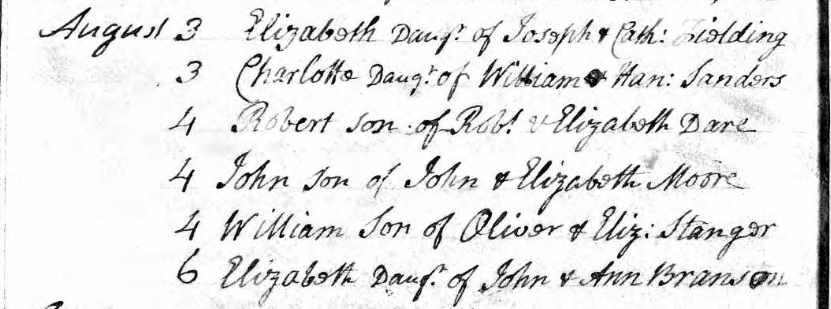 August 3 Elizabeth Daugr. of Joseph & Cath: Fielding
3 Charlotte Daugr. of William & Han: Sanders
4 Robert son of Robt. & Elizabeth Dare
4 John son of John & Elizabeth Moore
4 William Son of Oliver & Eliz: Stanger
6 Elizabeth Daugr. of John & Ann Branson